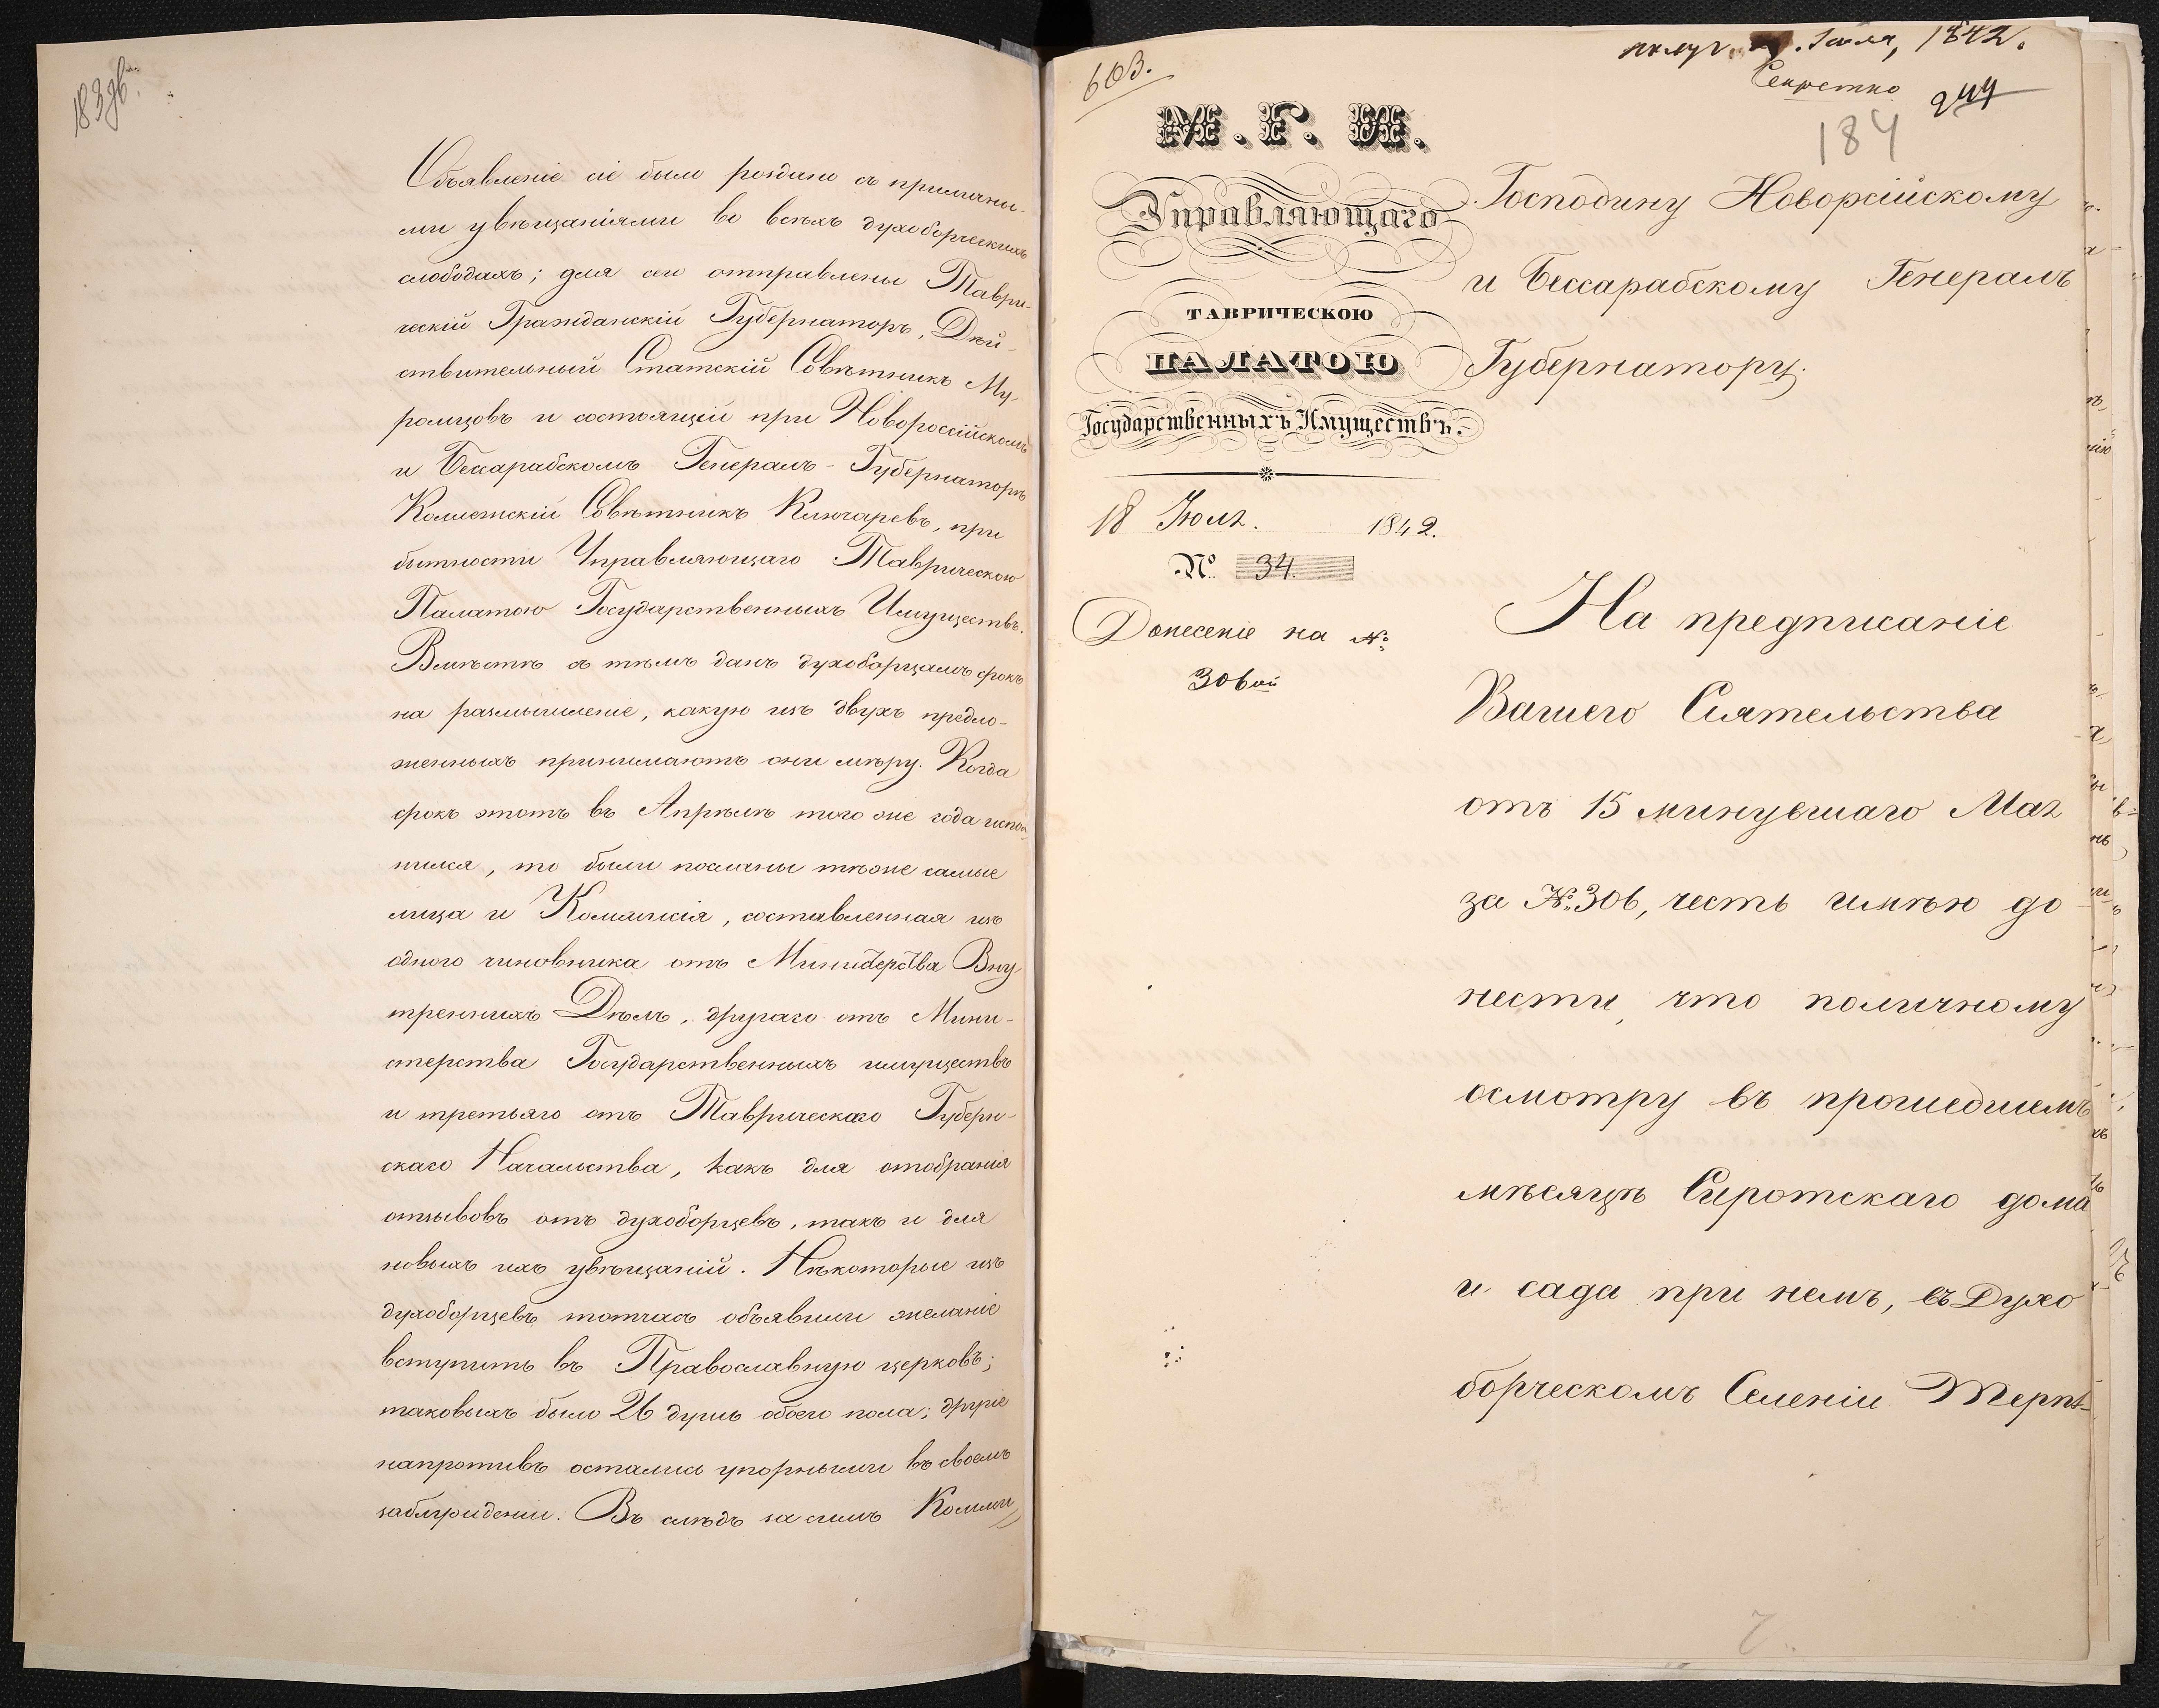 183 об.
Объявленіе сіе было роздано съ приличны-
ми увѣщаніями во всѣхъ духоборческихъ
слободахъ; для сего отправлены Таври-
ческій Гражданскій Губернаторъ, Дѣй-
ствительный Статскій Совѣтникъ Му-
ромцовъ и состоящій при Новороссійскомъ
и Бессарабскомъ Генералъ-Губернаторѣ
Коллежскій Совѣтникъ Ключаревъ, при
бытности Управляющаго Таврическою
Палатою Государственныхъ Имуществъ.
Вмѣстѣ съ тѣмъ данъ духоборцамъ срокъ
на размышленіе, какую изъ двухъ предло-
женныхъ принимаютъ они мѣру. Когда
срокъ этотъ въ Апрѣлѣ того же года испол-
нился, то были посланы тѣже самые
лица и Коммисія, составленная изъ
одного чиновника отъ Министерства Вну
треннихъ Дѣлъ, другаго отъ Мини-
стерства Государственныхъ имуществъ
и третьяго отъ Таврическаго Губерн-
скаго Начальства, какъ для отобранія
отзывовъ отъ духоборцевъ, такъ и для
новыхъ ихъ увѣщаній. Нѣкоторые изъ
духоборцевъ тотчасъ объявили желаніе
вступить въ Православную церковь;
таковыхъ было 26 душъ обоего пола; другіе
напротивъ остались упорными въ своемъ
заблужденіи. Въ слѣдъ за симъ Комми
603.
получ. Іюля, 1842.
Секретно
244
184
М. Г. И.
Управляющаго
ТАВРИЧЕСКОЮ
ПАЛАТОЮ
Государственныхъ Имуществъ.
18 Іюля. 1842.
№ 34.
Донесеніе на №
306ой
Господину Новорсійскому
и Бессарабскому Генералъ
Губернатору.
На предписаніе
Вашего Сіятельства
отъ 15 минувшаго Мая
за №306, честь имѣю до
нести, что поличному
осмотру въ прошедшемъ
мѣсяцѣ Сиротскаго дома
и сада при немъ, въ Духо
борческомъ Селеніи Терпѣ-